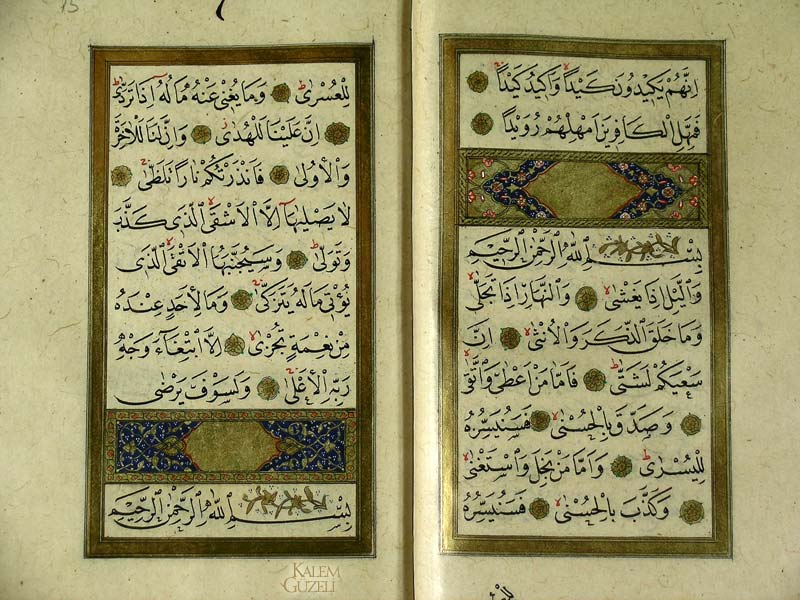 اِنَّهُمْ يَكِيدُونَ كَيْدًا وَاَكِيدُ كَيْدًا
فَمَهِّلِ الْكَافِرِينَ اَمْهِلْهُمْ رُوَيْدًا
بِسْمِ اللّٰهِ الرَّحْمٰنِ الرَّحِيمِ
وَالَّيْلِ اِذَا يَغْشٰى وَالنَّهَارِ اِذَا تَجَلّٰى
وَمَا خَلَقَ الذَّكَرَ وَالْاُنْثٰى اِنَّ
سَعْيَكُمْ لَشَتّٰى فَاَمَّا مَنْ اَعْطٰى وَاتَّقٰى
وَصَدَّقَ بِالْحُسْنٰى فَسَنُيَسِّرُهُ
لِلْيُسْرٰى وَاَمَّا مَنْ بَخِلَ وَاسْتَغْنٰى
وَكَذَّبَ بِالْحُسْنٰى فَسَنُيَسِّرُهُ
لِلْعُسْرٰى وَمَا يُغْنِى عَنْهُ مَالُهُ اِذَا تَرَدّٰى
اِنَّ عَلَيْنَا لَلْهُدٰى وَاِنَّ لَنَا لَلْاٰخِرَةَ
وَالْاُولٰى فَاَنْذَرْتُكُمْ نَارًا تَلَظّٰى
لَا يَصْلٰيهَا اِلَّا الْاَشْقَى الَّذِى كَذَّبَ
وَتَوَلّٰى وَسَيُجَنَّبُهَا الْاَتْقَى الَّذِى
يُؤْتِى مَالَهُ يَتَزَكّٰى وَمَا لِاَحَدٍ عِنْدَهُ
مِنْ نِعْمَةٍ تُجْزٰى اِلَّا ابْتِغَاءَ وَجْهِ
رَبِّهِ الْاَعْلٰى وَلَسَوْفَ يَرْضٰى
بِسْمِ اللّٰهِ الرَّحْمٰنِ الرَّحِيمِ
KALEM
GÜZELİ